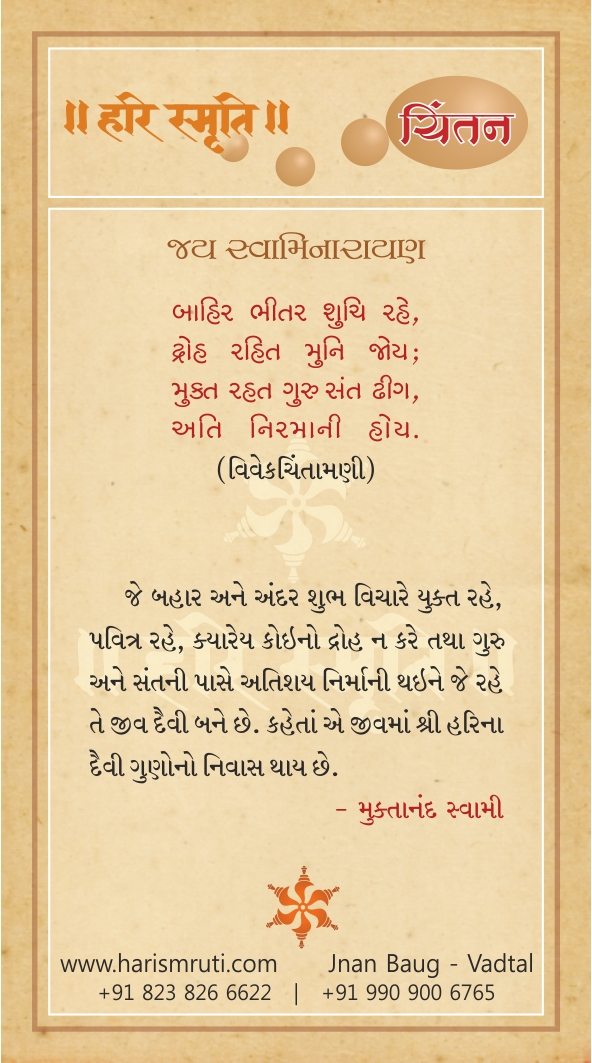 ॥ हरि स्मृति ॥
ચિંતન
જય સ્વામિનારાયણ
બાહિર ભીતર શુચિ રહે,
દ્રોહ રહિત મુનિ જોય;
મુક્ત રહત ગુરુ સંત ઢીગ,
અતિ નિરમાની હોય.
(વિવેકચિંતામણી)
જે બહાર અને અંદર શુભ વિચારે યુક્ત રહે,
પવિત્ર રહે, ક્યારેય કોઇનો દ્રોહ ન કરે તથા ગુરુ
અને સંતની પાસે અતિશય નિર્માની થઇને જે રહે
તે જીવ દૈવી બને છે. કહેતાં એ જીવમાં શ્રી હરિના
દૈવી ગુણોનો નિવાસ થાય છે.
- મુક્તાનંદ સ્વામી
www.harismruti.com Jnan Baug - Vadtal
+91 823 826 6622 | +91 990 900 6765